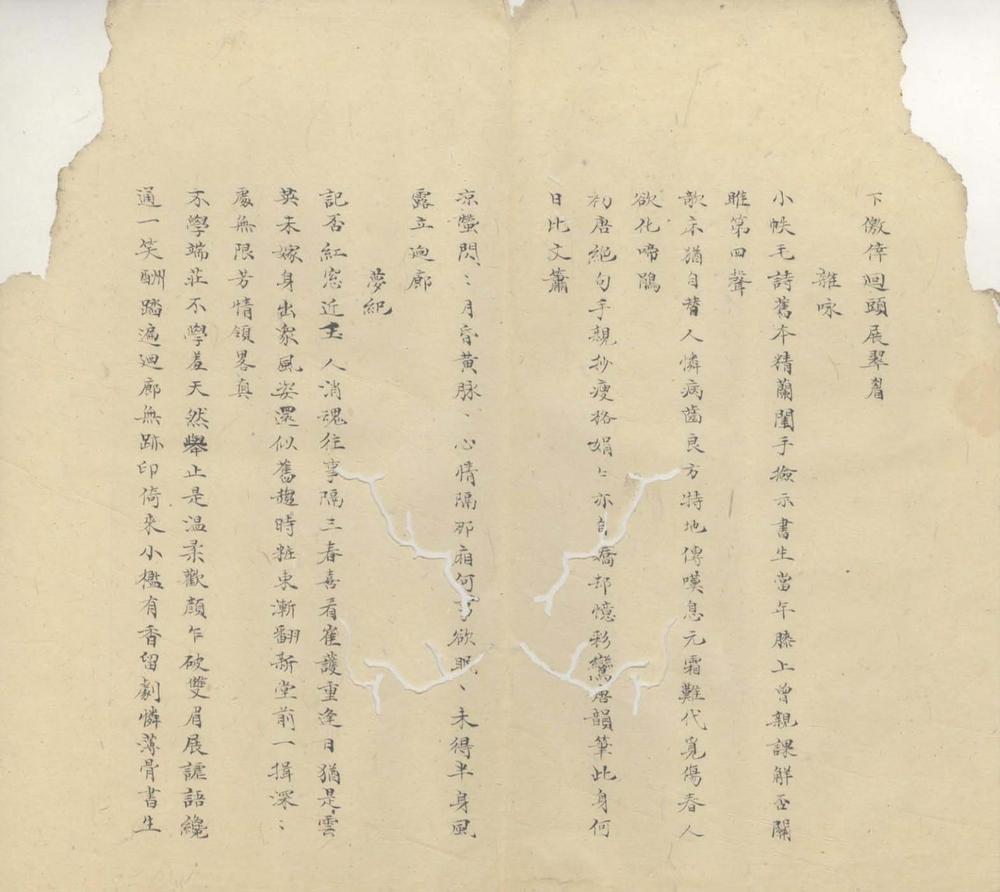 下儌倖迴頭展翠眉
雜咏
小帙毛詩舊本精蘭閨手撿示書生當年膝上曾親課解否關
雎第四聲
欹床猶自替人憐病齒良方特地傳嘆息元霜難代覓傷春人
欲化啼鵑
初唐絕句手親抄瘦格娟〻亦自嬌却憶彩鸞唐韻筆此身何
日比文簫
涼螢閃〻月昏黄脉〻心情隔那廂何事欲眠〻未得半身風
露立迴廊
夢紀
記否紅窓近玉人消魂往事隔三春喜看崔護重逢日猶是雲
英未嫁身出衆風姿還似舊趨時粧束漸翻新堂前一揖深〻
處無限芳情領畧真
不學端莊不學羞天然舉止是温柔歡顔乍破雙眉展謔語纔
通一笑酬踏遍迴廊無跡印倚來小檻有香留劇憐薄骨書生